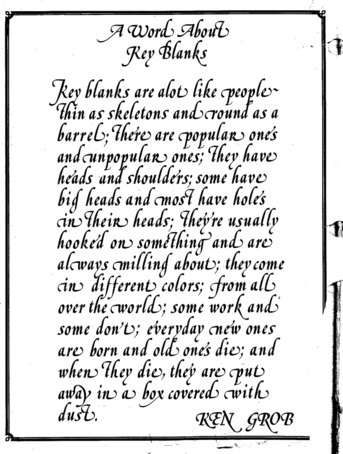 A Word About
Key Blanks
Key blanks are alot like people~
thin as skeletons and round as a
barrel; there are popular ones
and unpopular ones; they have
heads and shoulders; some have
big heads and most have holes
in their heads; they're usually
hooked on something and are
always milling about; they come
in different colors; from all
over the world; some work and
some don't; everyday new ones
are born and old ones die; and
when they die, they are put
away in a box covered with
dust.
KEN GROB